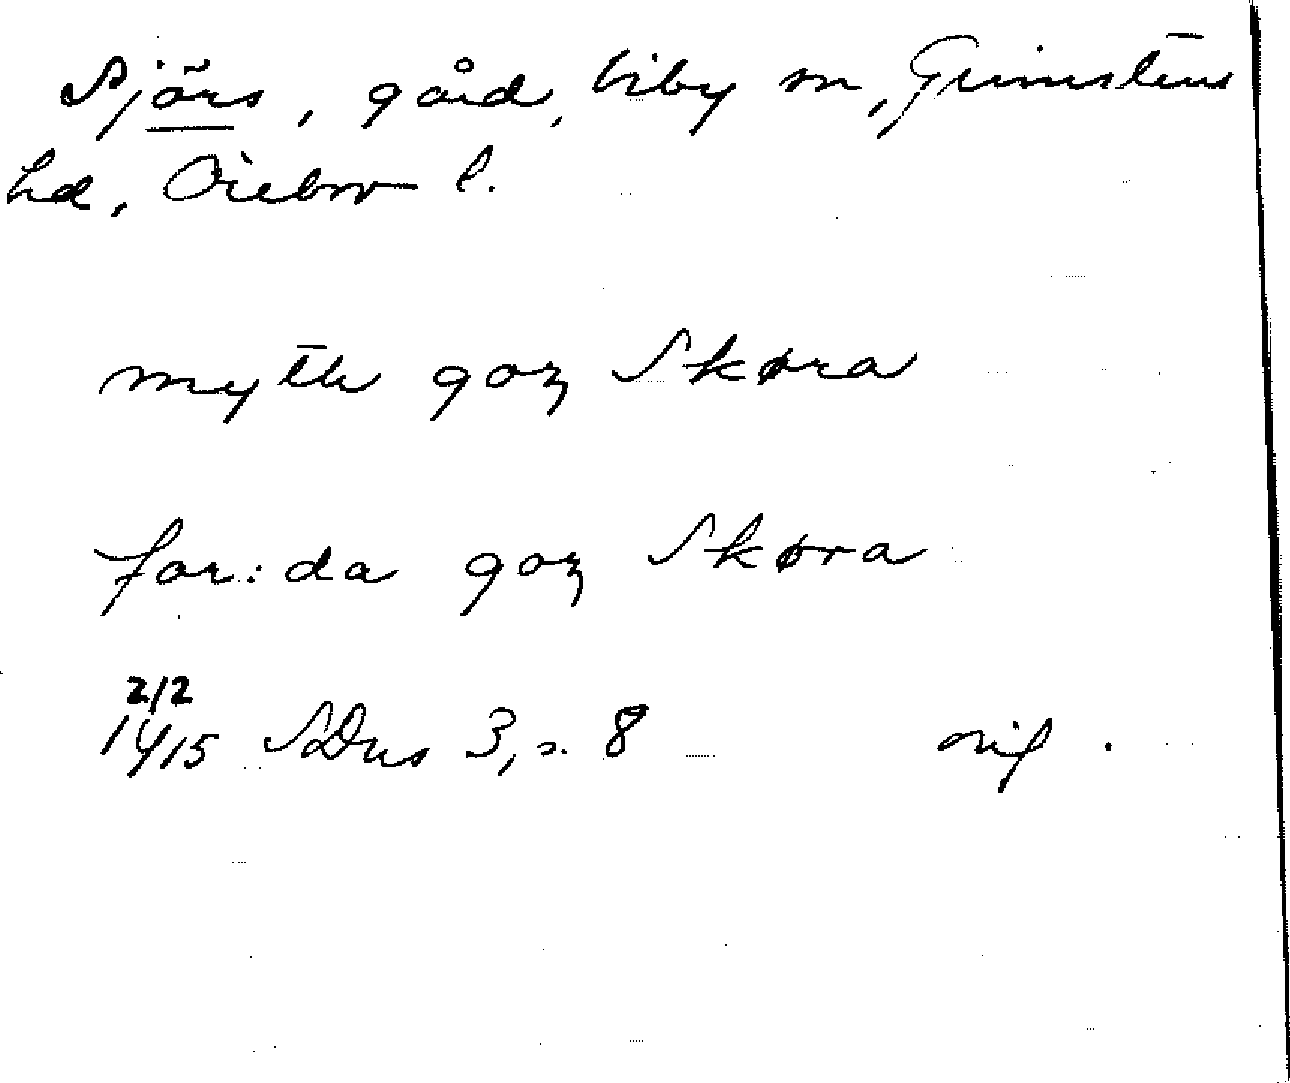 Sjörs, gård, Viby sn, Grimstens
hd, Örebro l.
mytth goz Skøra
for:da goz Skøra
2/2
1415 SDns 3, s. 8 orig.